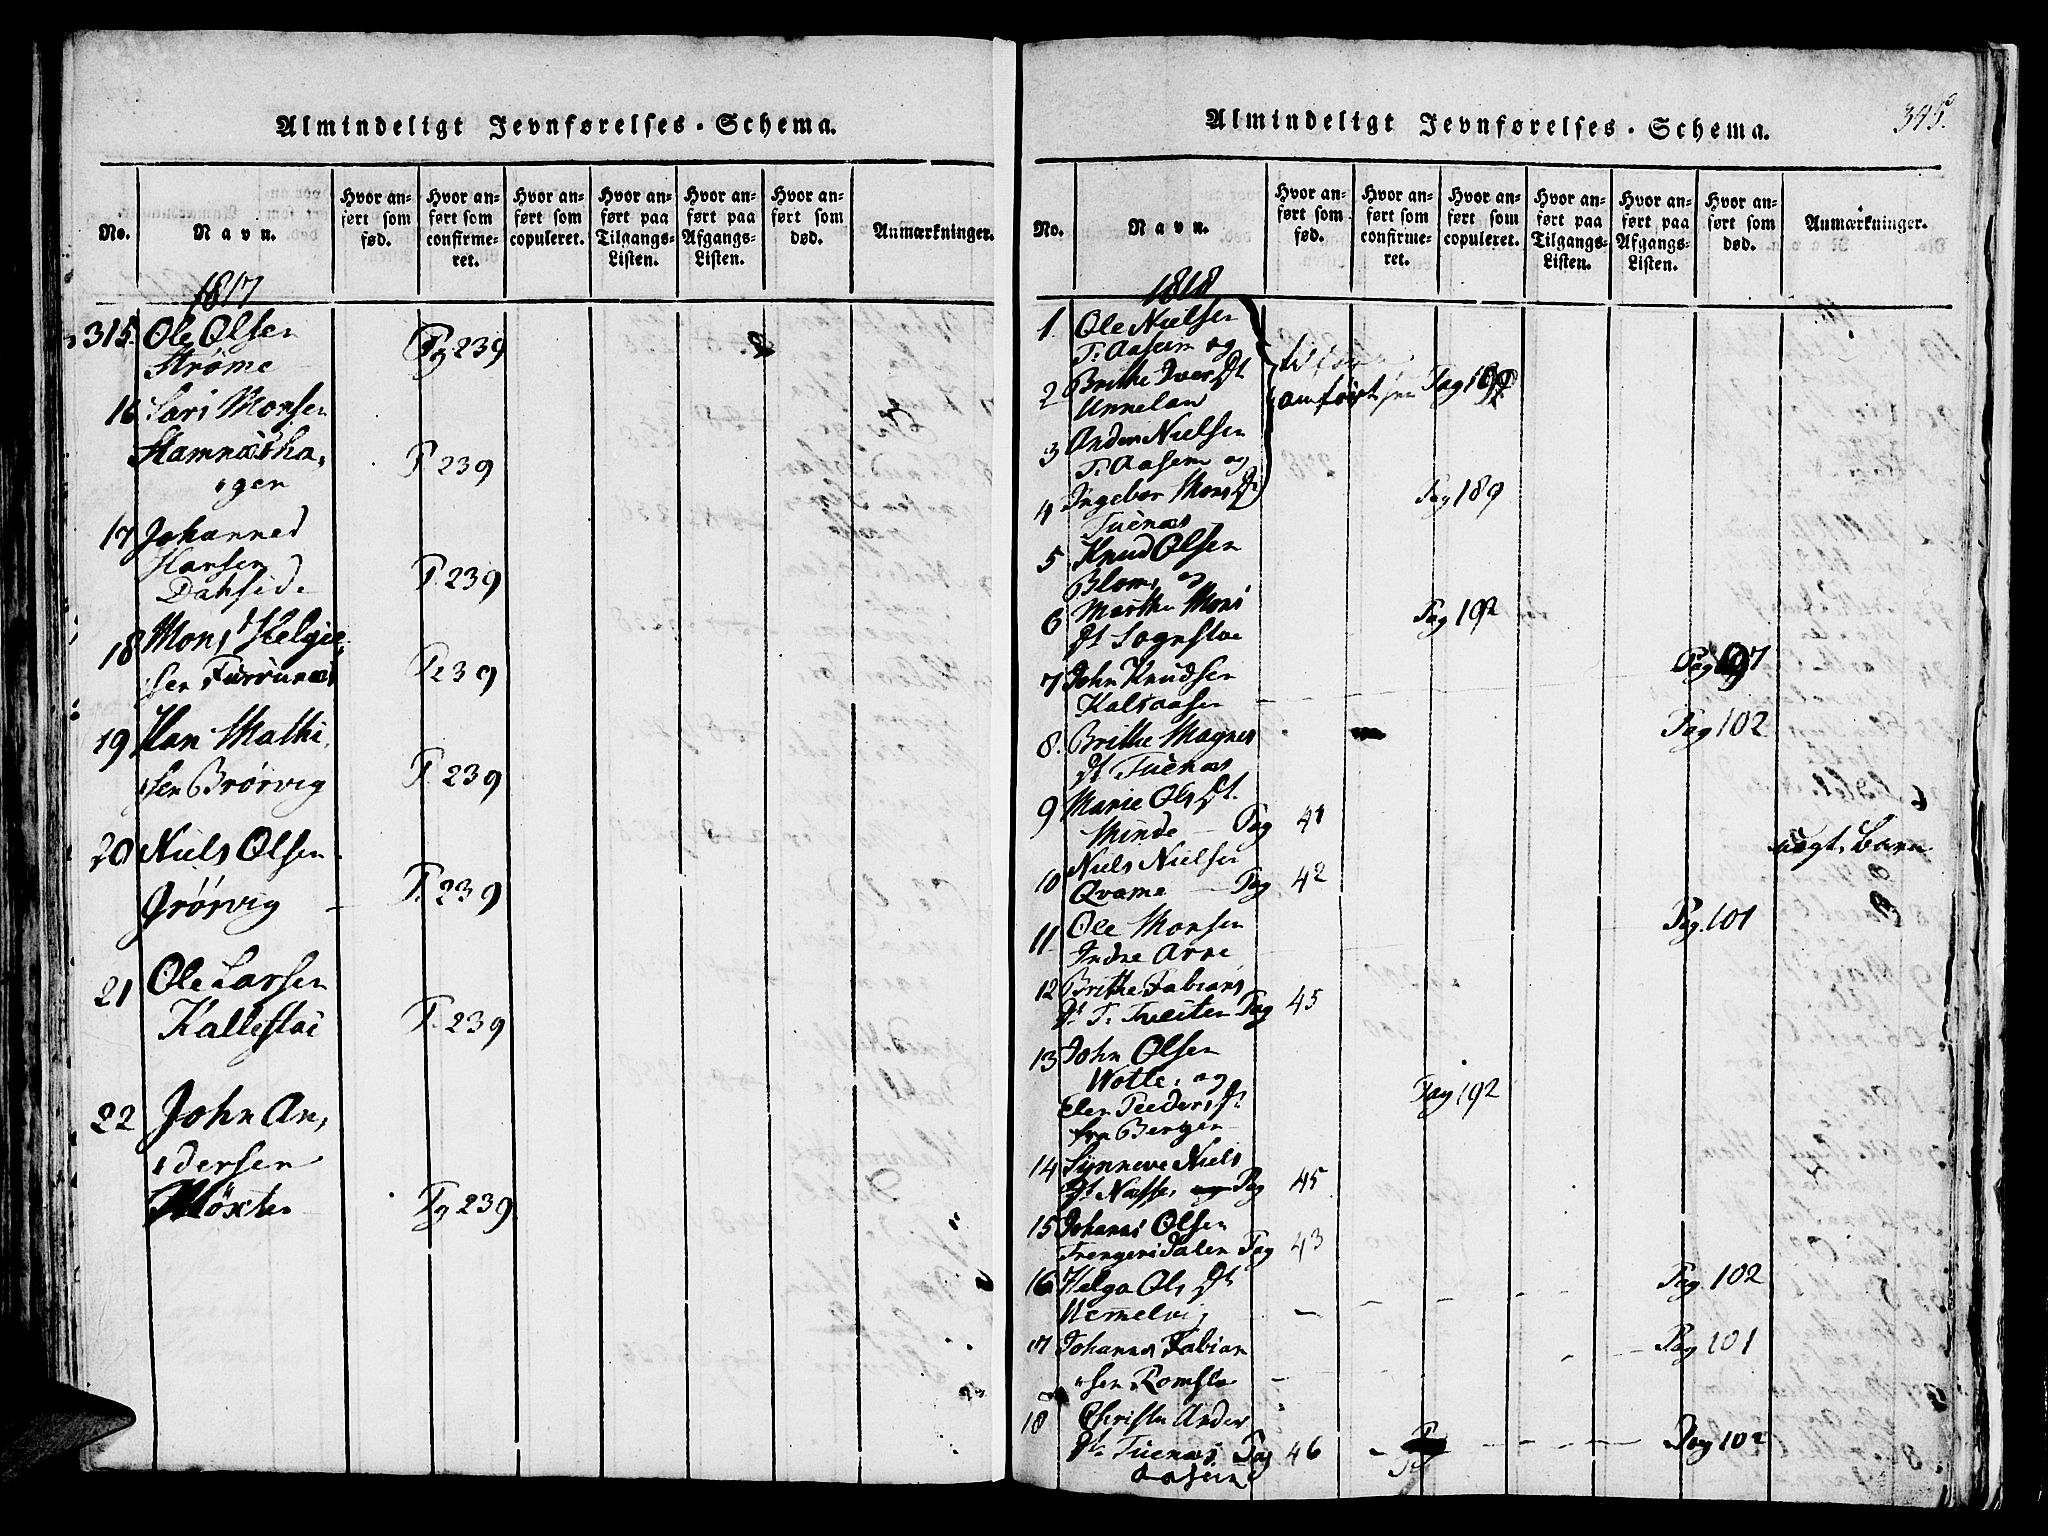 Almindeligt Jevnførelses-Schema.
No.
Navn.
Hvor an-
ført som
fød.
Hvor an-
ført som
confirme-
ret.
Hvor an-
ført som
copuleret.
Hvor an-
ført paa
Tilgangs-
Listen.
Hvor an-
ført paa
Afgangs-
Listen.
Hvor an-
ført som
død.
Anmærkninger.
1817
315. Ole Olsen
Strøme Pg 239
16 Lars Monsen
Hamnæsha,
gen P 239
17 Johannes
Hansen
Dahseide P. 239
18 Mons Helgie,
sen Furrunæs P. 239
19 Han Mathi,
sen Brørvig P. 239
20 Niels Olsen
Grørvig P. 239
21 Ole Larsen
Kallestæ P. 239
22 John An,
dersen
Möxter Pg 239
Almindeligt Jevnførelses-Schema.
345
No.
Navn.
Hvor an-
ført som
fød.
Hvor an-
ført som
confirme-
ret.
Hvor an-
ført som
copuleret.
Hvor an-
ført paa
Tilgangs-
Listen.
Hvor an-
ført paa
Afgangs-
Listen.
Hvor an-
ført som
død.
Anmærkninger.
1818
1. Ole Nielsen
T. Aasem og
2 Brithe Iversdt
Unneland
3 Anders Nielsen
T. Aasem og
4 Ingebor Monsdt Pag 189
Tuenæs
5 Knud Olsen
Blom, og
6 Marthe Mons Pag 192
dt Sognstæ
7 John Knudsen
Kalsaasen
8. Brithe Magnes Pag 102
dt Tuenæs
9 Marie Olsdt.
Minde Pag 41
10 Niels Nielsen
Qvame Pag 42
11 Ole Monsen Pag. 101
Indre Arne
12 Brithe Fabians
dt T. Tveiten Pag 45
13 John Olsen
Wolle, og
Elen Peedersdt Pag 192
fra Bergen
14 Synneve Niels
dt Næsse, Pag 45
15 Johanes Olsen
Trengeridalen Pag 43
16 Helga Olsdt Pag 102
Hemelvig
17 Johannes Fabian Pag 101
sen Romslo
18 Christn Anders
dt Tuenæs, Pag 46 Pag 102